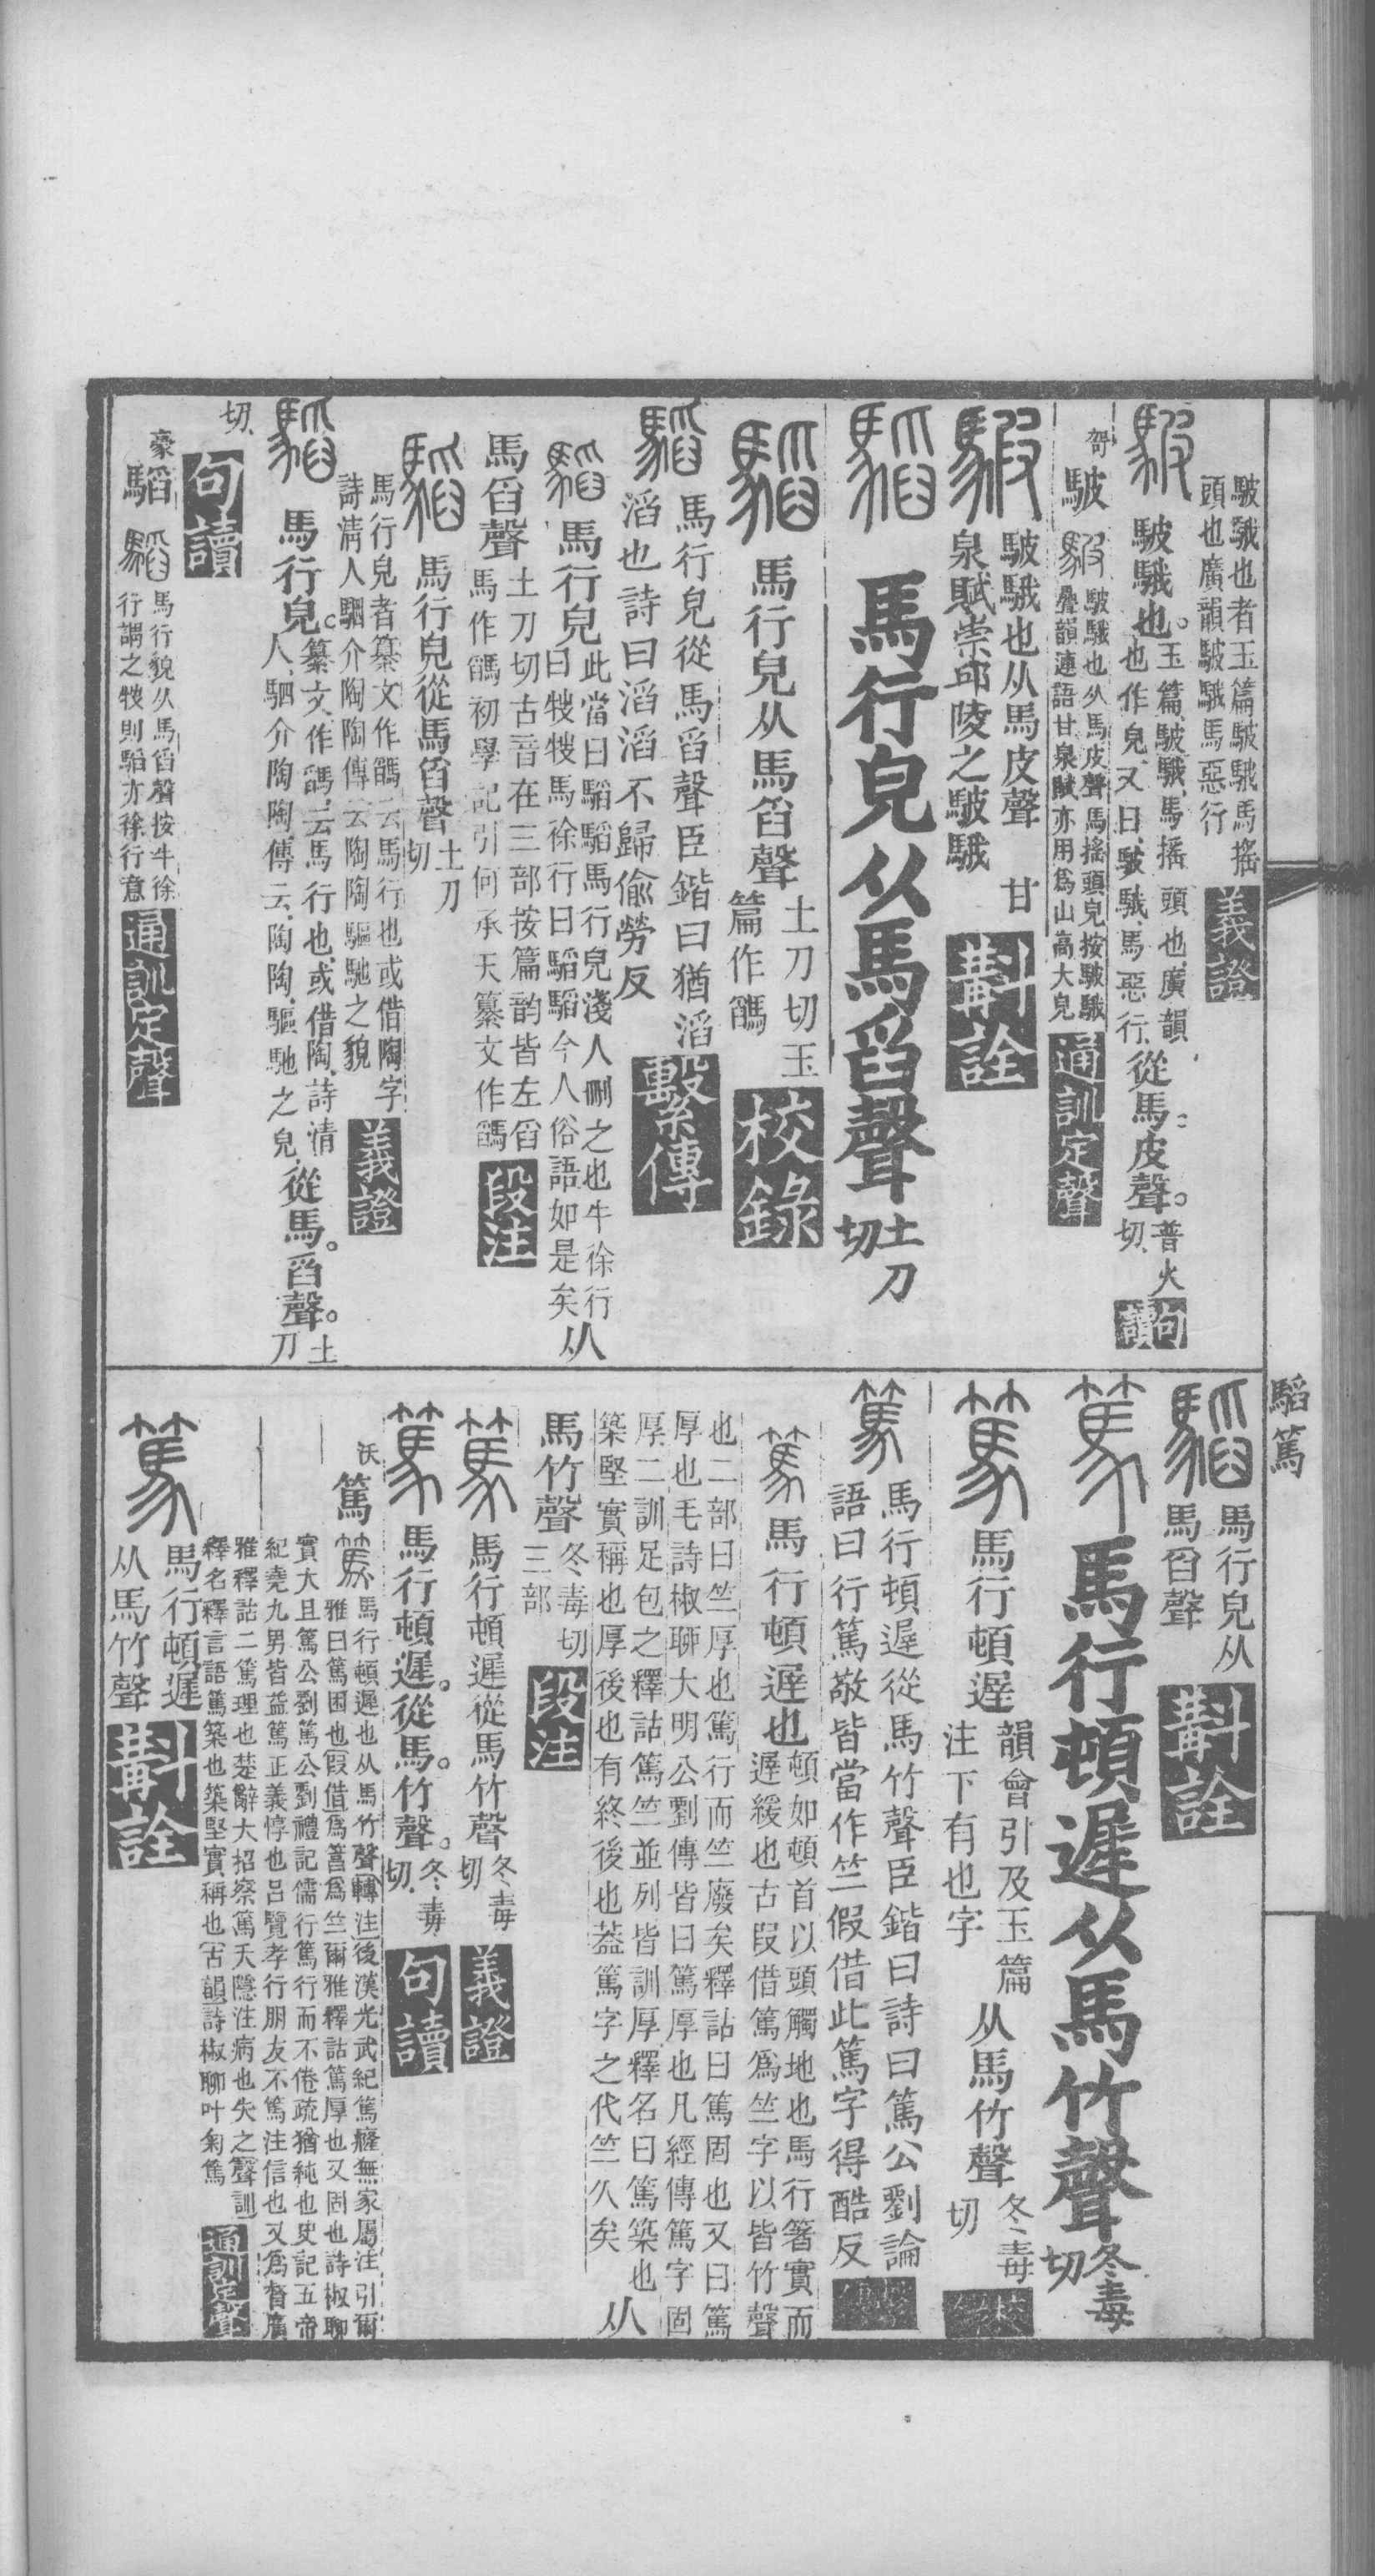 駊騀也者玉篇駊騀馬搖
頭也廣韻駊騀馬惡行
義證
駊騀也。玉篇、駊騀、馬搖頭也、廣韻、
也作皃、又曰、駊騀、馬惡行、
從馬皮聲。普火
切、
句讀
哿
駊
駊騀也从馬皮聲馬搖頭皃按駊騀
疊韻連語甘泉賦亦用爲山高大皃
通訓定聲
駊騀也从馬皮聲 甘
泉賦崇邱陵之駊騀
斠詮
馬行皃从馬舀聲土刀
切
馬行皃从馬舀聲土刀切玉
篇作䮵
校錄
馬行皃從馬舀聲臣鍇曰猶滔
滔也詩曰滔滔不歸偸勞反
繫傳
馬行皃此當曰騊騊馬行皃淺人刪之也牛徐行
曰㹗㹗馬徐行曰騊騊今人俗語如是矣从
馬舀聲土刀切古音在三部按篇韵皆左舀
馬作䮵初學記引何承天纂文作䮵
段注
馬行皃從馬舀聲土刀
切
馬行皃者纂文作䮵云馬行也或借陶字
詩淸人駟介陶陶傳云陶陶驅馳之貌
義證
馬行皃。纂文、作䮵、云馬行也、或借陶、詩淸
人、駟介陶陶、傳云、陶陶、驅馳之皃、
從馬。舀聲。土
刀
切、
句讀
豪
馬行貌从馬舀聲按牛徐
行謂之㹗則騊亦徐行意
通訓定聲
馬行皃从
馬舀聲
斠詮
馬行頓遲从馬竹聲冬毒
切
馬行頓遲韻會引及玉篇
注下有也字
从馬竹聲冬毒
切
馬行頓遲從馬竹聲臣鍇曰詩曰篤公劉論
語曰行篤敬皆當作竺假借此篤字得酷反
馬行頓遲也頓如頓首以頭觸地也馬行箸實而
遲緩也古叚借篤爲竺字以皆竹聲
也二部曰竺厚也篤行而竺廢矣釋詁曰篤固也又曰篤
厚也毛詩椒聊大明公劉傳皆曰篤厚也凡經傳篤字固
厚二訓足包之釋詁篤竺並列皆訓厚釋名曰篤築也
築堅實稱也厚後也有終後也葢篤字之代竺久矣从
馬竹聲冬毒切
三部
段注
馬行頓遲從馬竹聲冬毒
切
義證
馬行頓遲。從馬。竹聲。冬、毒
切、
句讀
沃
篤
馬行頓遲也从馬竹聲轉注後漢光武紀篤癃無家屬注引爾
雅曰篤困也叚借爲𥳑爲竺爾雅釋詁篤厚也又固也詩椒聊
實大且篤公劉篤公劉禮記儒行篤行而不倦疏猶純也史記五帝
紀堯九男皆益篤正義惇也呂覽孝行朋友不篤注信也又爲督廣
雅釋詁二篤理也楚辭大招察篤夭隱注病也失之聲訓
釋名釋言語篤築也築堅實稱也古韻詩椒聊叶匊篤
通訓定聲
馬行頓遲
从馬竹聲
斠詮
騊篤